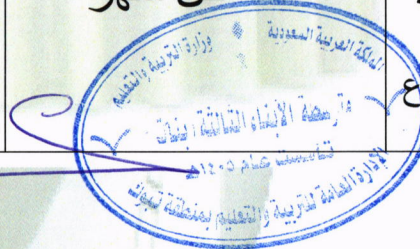 المملكة العربية السعودية
وزارة التربية والتعليم
الأبناء الثالثة
بنات
تأسست عام ١٤٠٥هـ
الإدارة العامة للتربية والتعليم بمنطقة تبوك